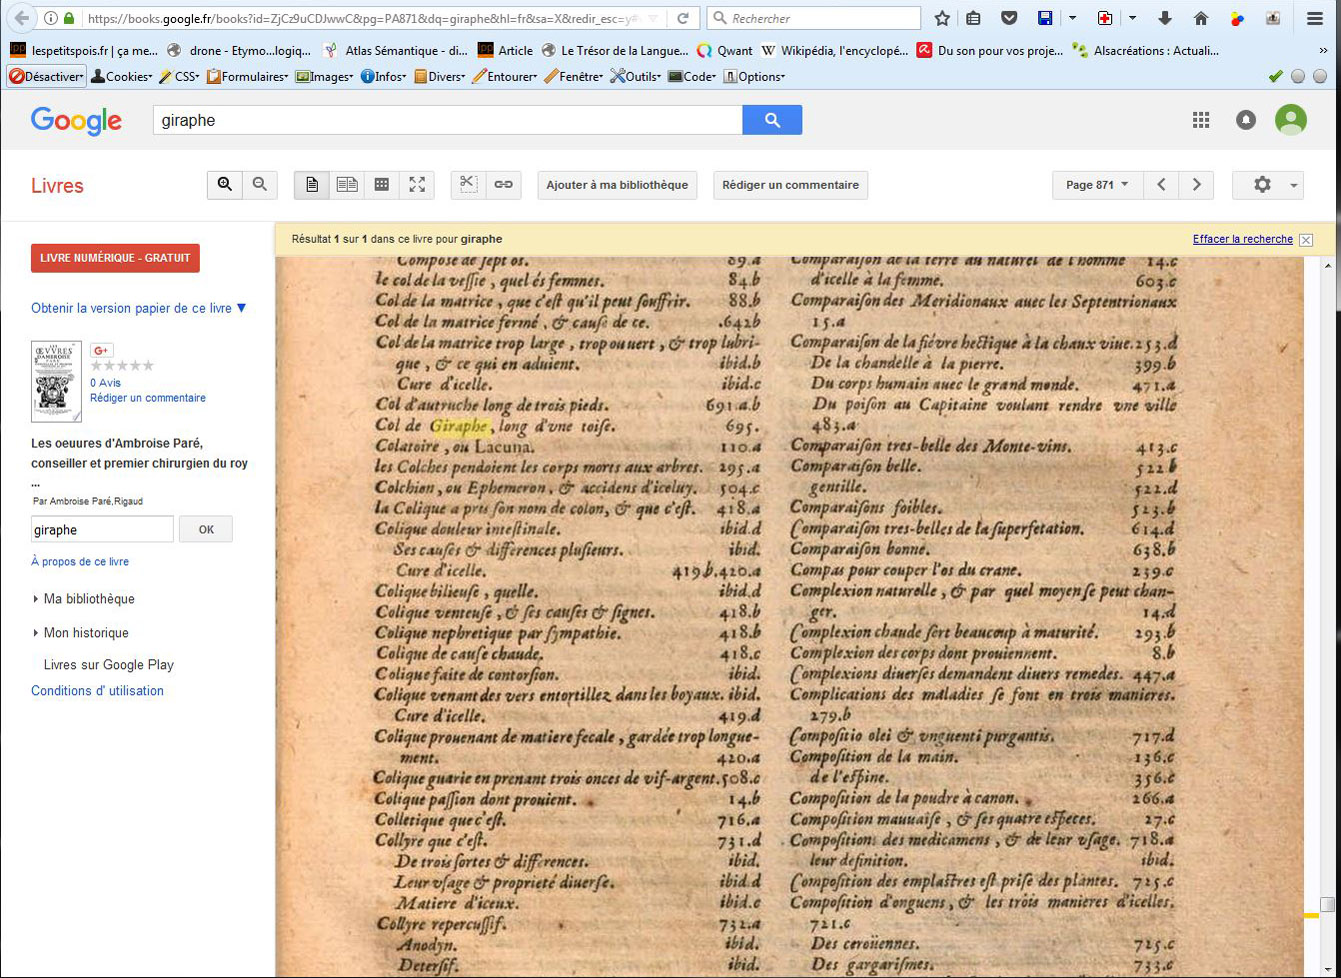 https://books.google.fr/books?id=ZjCz9uCDJwwC&pg=PA871&dq=giraphe&hl=fr&sa=X&redir_esc=y#
Rechercher
lespetitspois.fr | ça me...
drone - Etymo...logiq...
Atlas Sémantique - di...
Article
Le Trésor de la Langue...
Qwant
Wikipédia, l'encyclopé...
Du son pour vos proje...
Alsacréations : Actuali...
Désactiver
Cookies
CSS
Formulaires
Images
Infos
Divers
Entourer
Fenêtre
Outils
Code
Options
Google
giraphe
Livres
Ajouter à ma bibliothèque
Rédiger un commentaire
Page 871
LIVRE NUMÉRIQUE - GRATUIT
Obtenir la version papier de ce livre ▼
ŒVVRES
G+
0 Avis
Rédiger un commentaire
Les oeuures d'Ambroise Paré,
conseiller et premier chirurgien du roy
...
Par Ambroise Paré,Rigaud
giraphe
OK
À propos de ce livre
Ma bibliothèque
Mon historique
Livres sur Google Play
Conditions d' utilisation
Résultat 1 sur 1 dans ce livre pour giraphe
Effacer la recherche
Composé de ſept os. 89.a
le col de la veſſie, quel és femmes. 84.b
Col de la matrice, que c'eſt qu'il peut ſouffrir. 88.b
Col de la matrice fermé, & cauſe de ce. .642b
Col de la matrice trop large, trop ouuert, & trop lubri-
que, & ce qui en aduient. ibid.b
Cure d'icelle. ibid.c
Col d'autruche long de trois pieds. 691.a.b
Col de Giraphe, long d'vne toiſe. 695.
Colatoire, ou Lacuna. 110.a
les Colches pendoient les corps morts aux arbres. 295.a
Colchion, ou Ephemeron, & accidens d'iceluy. 504.c
la Colique a pris ſon nom de colon, & que c'eſt. 418.a
Colique douleur inteſtinale. ibid.d
Ses cauſes & differences pluſieurs. ibid.
Cure d'icelle. 419.b.420.a
Colique bilieuſe, quelle. ibid.d
Colique venteuſe, & ſes cauſes & ſignes. 418.b
Colique nephretique par ſympathie. 418.b
Colique de cauſe chaude. 418.c
Colique faite de contorſion. ibid.
Colique venant des vers entortillez dans les boyaux. ibid.
Cure d'icelle. 419.d
Colique prouenant de matiere fecale, gardée trop longue-
ment. 420.a
Colique guarie en prenant trois onces de vif-argent. 508.c
Colique paſſion dont prouient. 14.b
Colletique que c'eſt. 716.a
Collyre que c'eſt. 731.d
De trois ſortes & differences. ibid.
Leur vſage & proprieté diuerſe. ibid.d
Matiere d'iceux. ibid.c
Collyre repercuſſif. 732.a
Anodyn. ibid.
Deterſif. ibid.
Comparaiſon de la terre au naturel de l'homme 14.c
d'icelle à la femme. 603.c
Comparaiſon des Meridionaux auec les Septentrionaux
15.a
Comparaiſon de la fiévre hectique à la chaux viue. 253.d
De la chandelle à la pierre. 399.b
Du corps humain auec le grand monde. 471.a
Du poiſon au Capitaine voulant rendre vne ville
483.a
Comparaiſon tres-belle des Monte-vins. 413.c
Comparaiſon belle. 522.b
gentille. 522.d
Comparaiſons foibles. 523.b
Comparaiſon tres-belles de la ſuperfetation. 614.d
Comparaiſon bonne. 638.b
Compas pour couper l'os du crane. 239.c
Complexion naturelle, & par quel moyen ſe peut chan-
ger. 14.d
Complexion chaude ſert beaucoup à maturité. 293.b
Complexion des corps dont prouiennent. 8.b
Complexions diuerſes demandent diuers remedes. 447.a
Complications des maladies ſe font en trois manieres.
279.b
Compoſitio olei & vnguenti purgantis. 717.d
Compoſition de la main. 136.c
de l'eſpine. 356.c
Compoſition de la poudre à canon. 266.a
Compoſition mauuaiſe, & ſes quatre eſpeces. 27.c
Compoſitions des medicamens, & de leur vſage. 718.a
leur definition. ibid.
Compoſition des emplaſtres eſt priſe des plantes. 725.c
Compoſition d'onguens, & les trois manieres d'icelles.
721.c
Des ceroüennes. 725.c
Des gargariſmes. 733.c